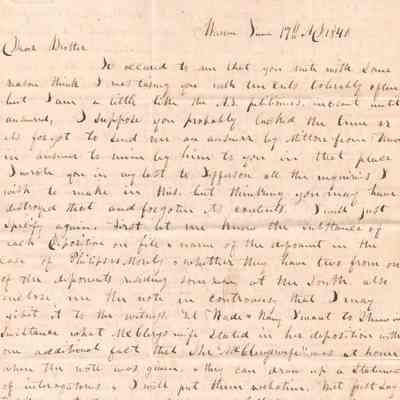 Warren June 17th AD 1840
Dear Brother
It occured to me that you with some
reason think I was taxing you with ten cents tolerably often
but I am a little like the petitioners, insist until
answered, I suppose you probably lacked the time or
forgot to send me an answer by from
in answer to mine by him to you in that place
I wrote you in my last to Jefferson all the inquiries I
wish to make in this. but thinking you may have
distroyed that and forgotten its contents. I will just
specify again. First let me know the substance of
each Deposition on file & name of the deponant in the
case of Philips vs & whether they have two from one
of the deponents residing some where at the South also
enclose me the note in controversy that I may
exhibit it to the witness. Let Wade & I want to
substance what McClergs wife stated in her deposition with
one additional fact that She "McClergs wife" was at home
when the note was given. & they can draw up a Statement
of interogatories & I will put them Met just say